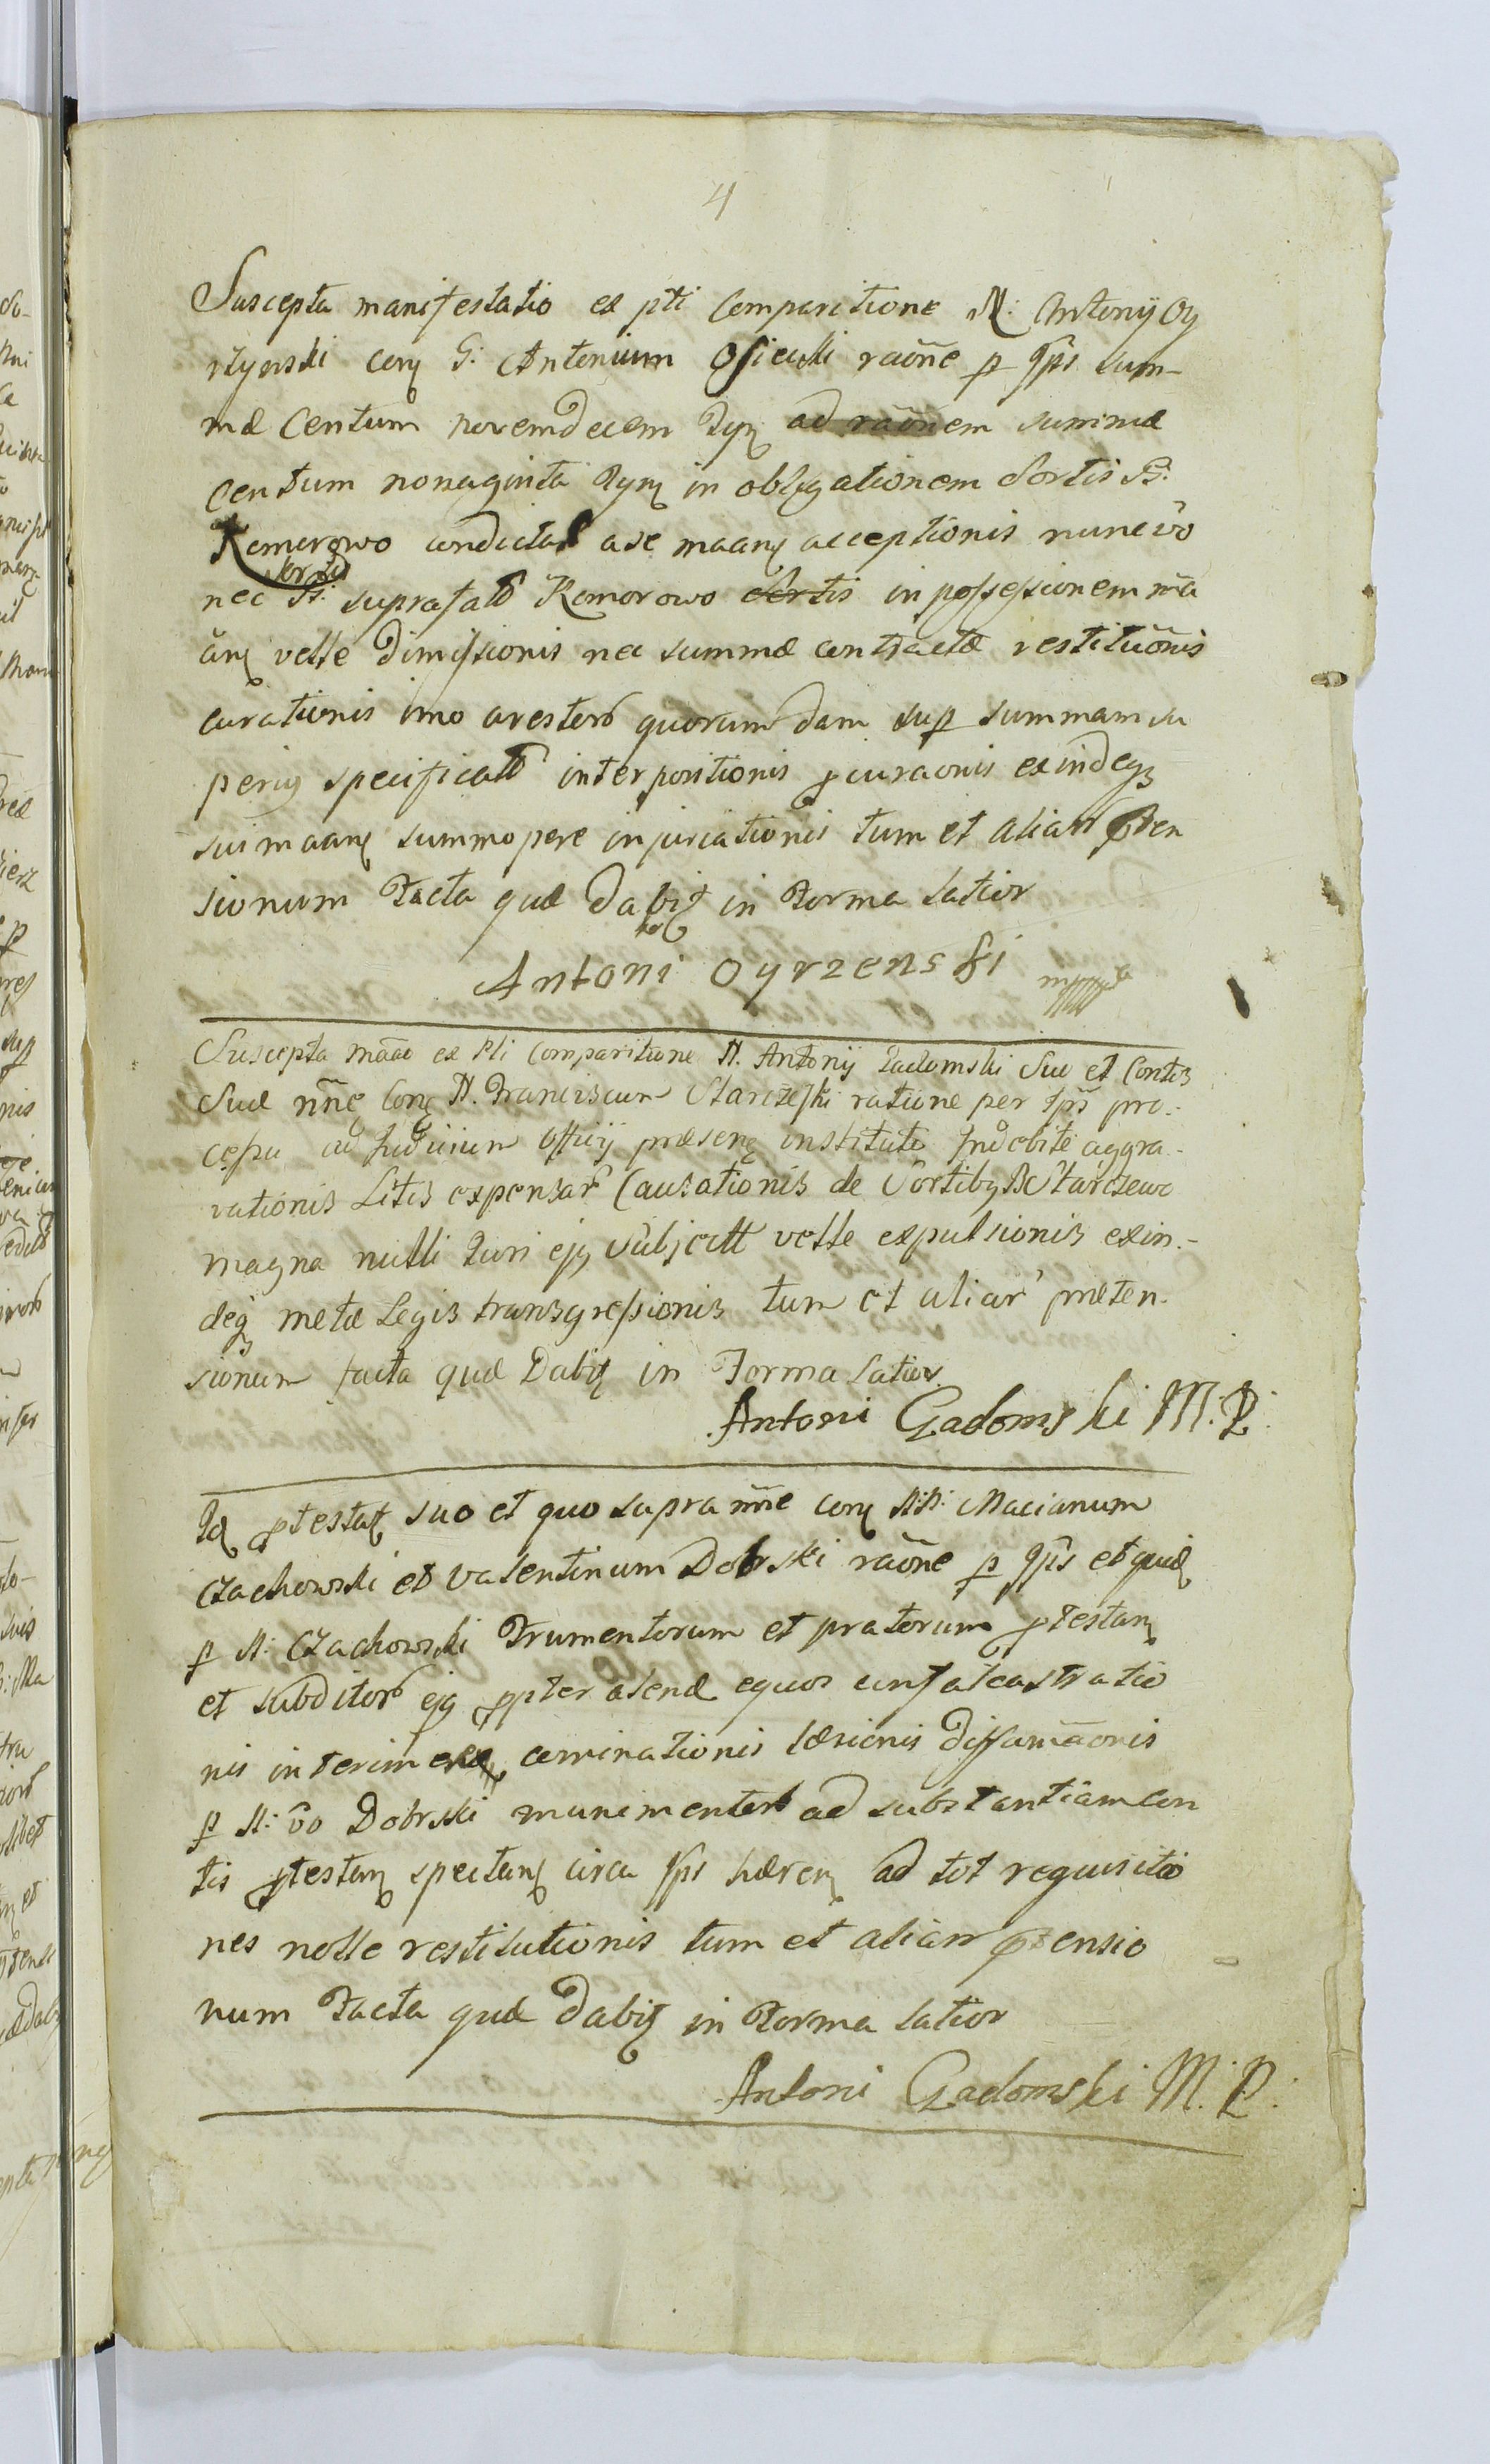 4
Suscepta manifestatio ex pti Comparitione N: Antonij Oy
rzynski conŧ G: Antonium Osiecki raõne p Ips sum-
mæ Centum novemdecem Tynf ad raõnem summæ
Centum nonaginta Tynf in obligationem Sortis B:
Komorowo condictæ a se maanŧ acceptionis nunc vo
nec B: sortis suprafato Komorowo sortis in possessionem ma
anŧ velle dimissionis nec summæ contractæ restituõnis
curationis imo arestor quorumdam sup summam su
perius specificato interpositionis pcuraonis exindeq
sui maanŧ summopere injuriationis tum et aliar pten
sionum Facta quæ dabit in Forma latior
Antoni Oyrzenski mppa
Suscepta maão ex Pti Comparitione N. Antonij Gadomski Suo et Contis
Suæ nñe Conŧ N. Franciscum Starczeski ratione per Ips pro-
cessu ad Judicium Officij præsenŧ instituto Indebite aggra-
vationis Litis expensar Causationis de Sortibq B Starczewo
magna nulli Juri ejq Subjectt velle expulsionis exin-
deq metæ Legis transgressionis tum et aliar præten-
sionum facta quæ Dabit in Forma latior
Antoni Gadomski M. P.
Id ptestat suo et quo supra nñe conŧ NN: Macianum
Czachowski et Valentinum Dobrski raõne p Ips et quid
p N: Czachowski Frumentorum et pratorum ptestanŧ
et subditor ejq ppter alenæ equos confalcastratio
nis interimend cominationis læsionis diffamãonis
p N: vo Dobrski munimentor ad substantiam con
tis ptestanŧ spectanŧ circa Ips hærenŧ ad tot requisitio
nes nolle restitutionis tum et aliarr ptensio
num Facta quæ dabit in Forma latior
Antoni Gadomski M. P.